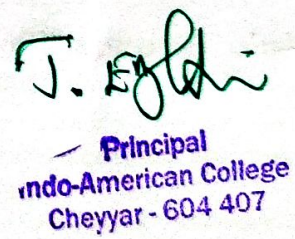 Principal
Indo-American College
Cheyyar - 604 407